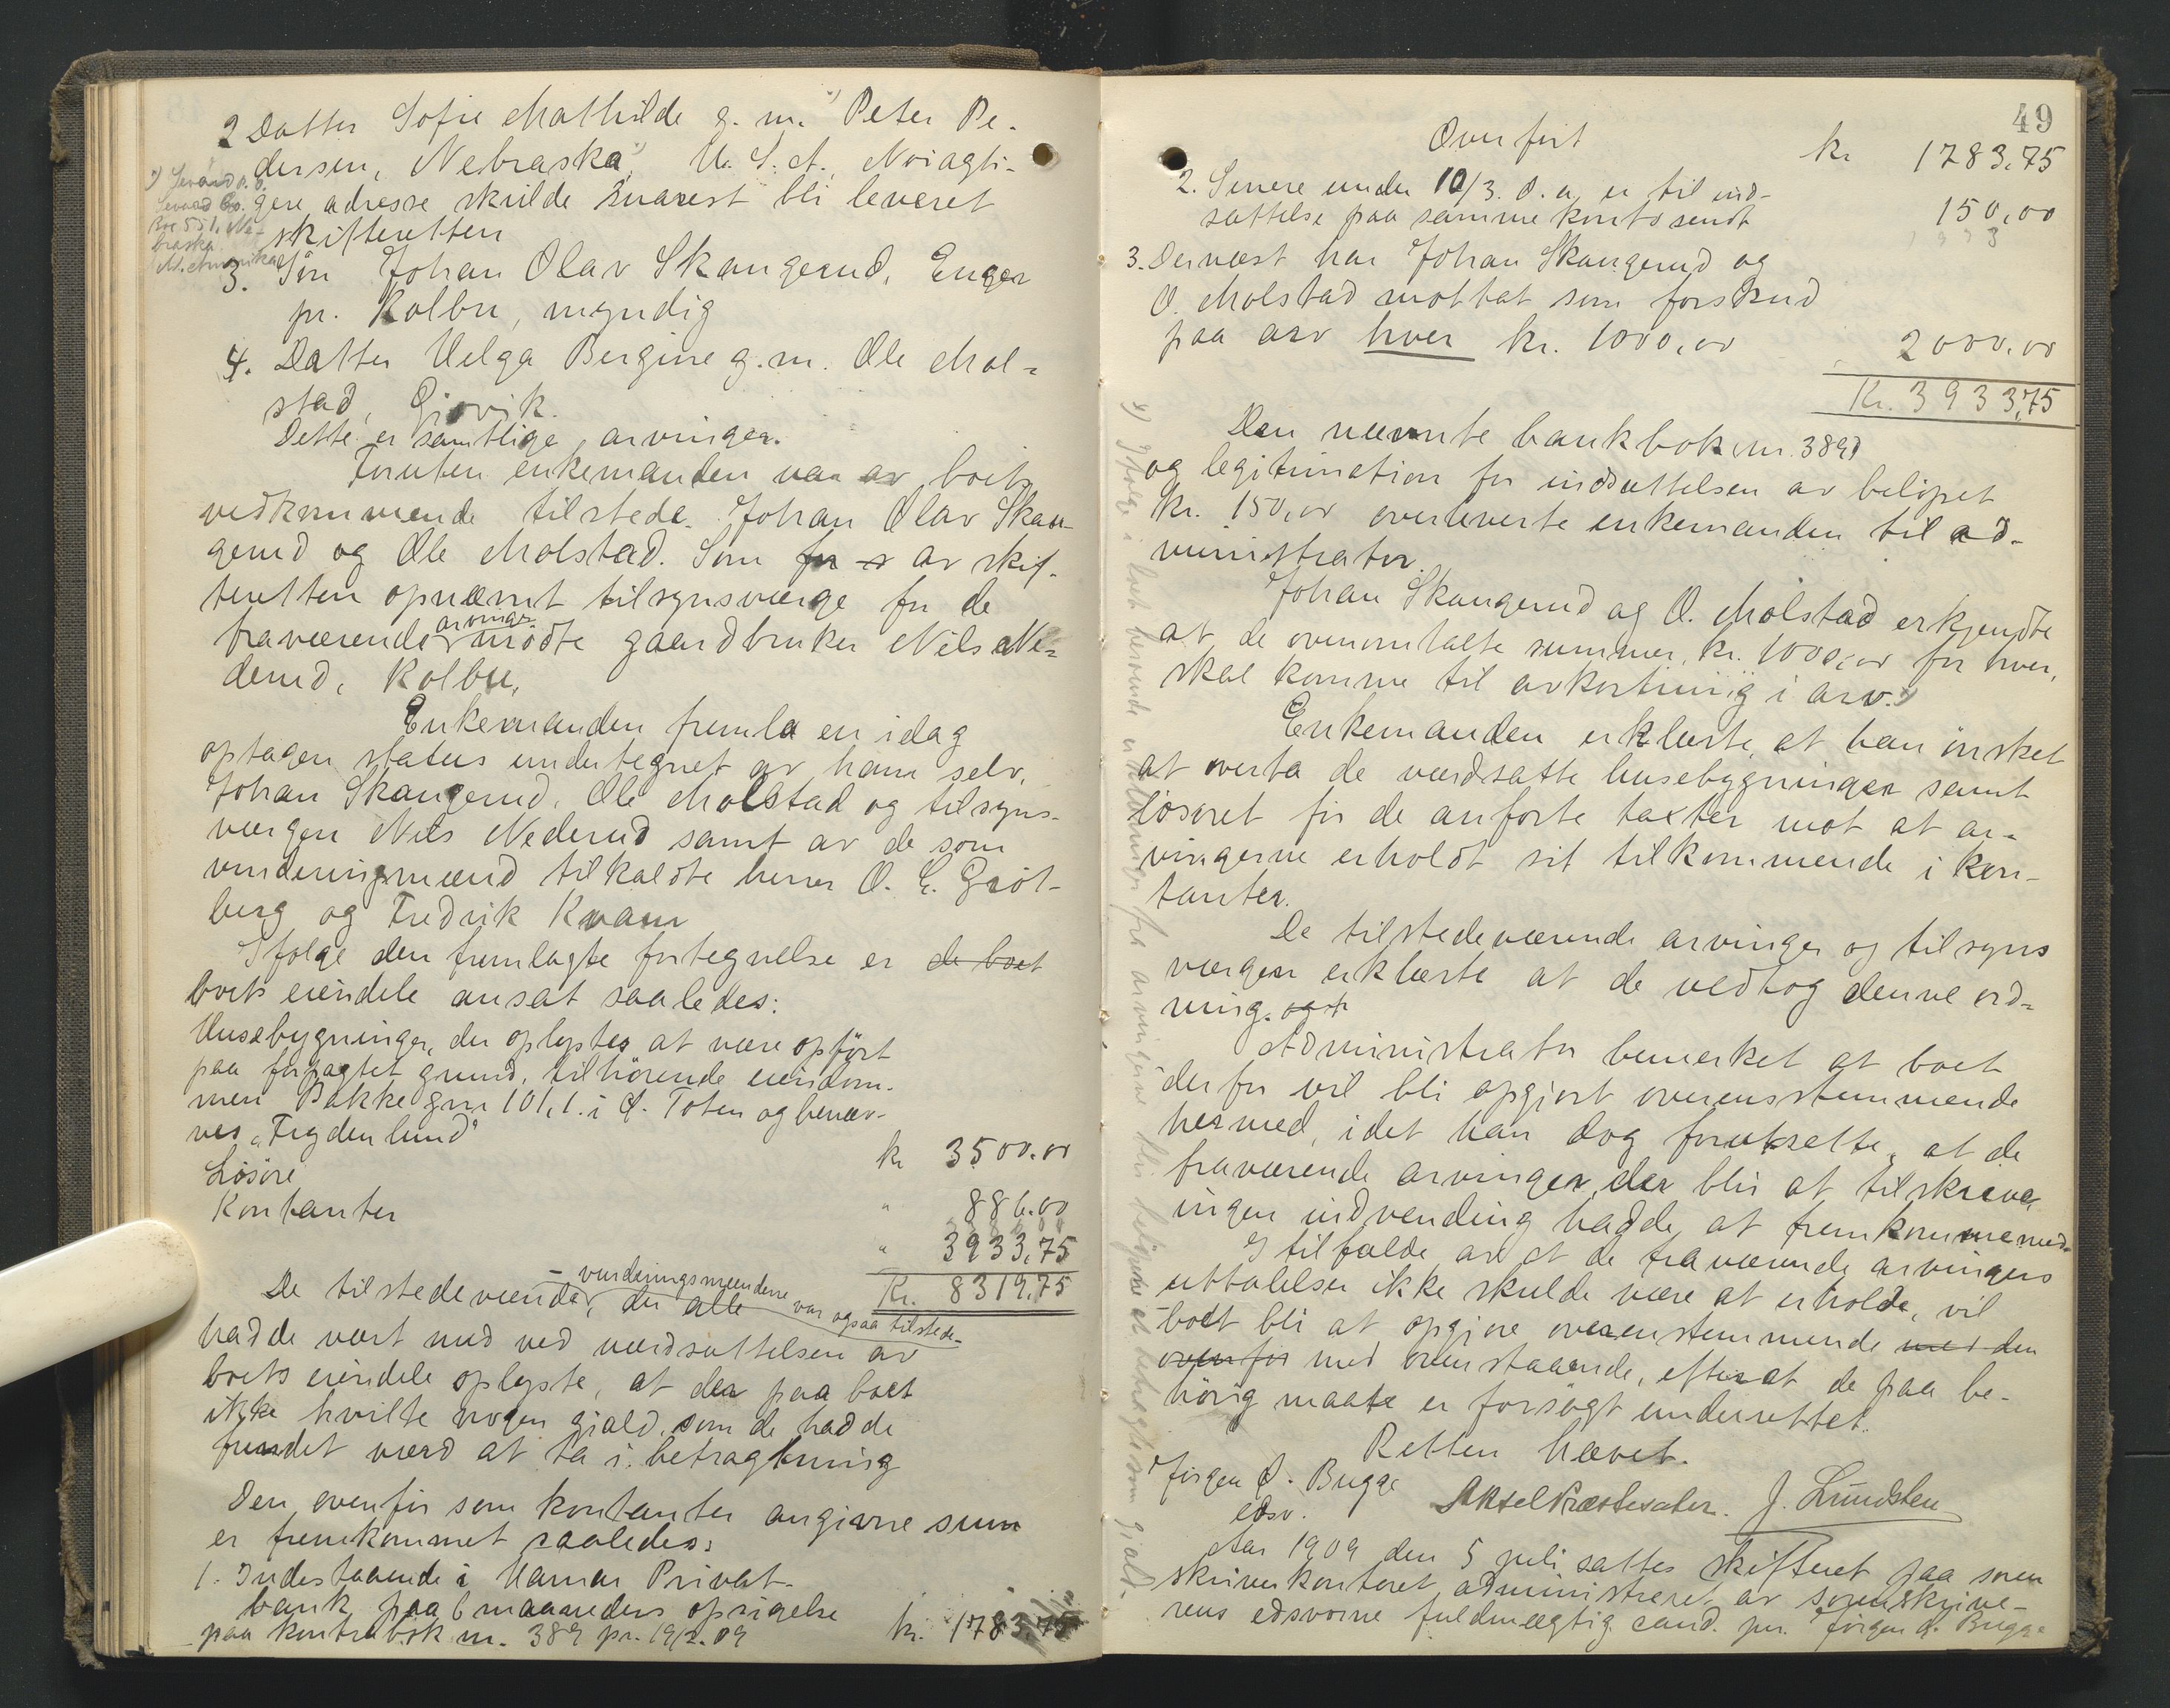 2 Datter Sofie Mathilde g. m. Peter Pe-
dersen, Nebraska, U. S. A. Nøiagti-
gere adresse skulde snarest bli leveret
skifteretten
Box 551, Ne-
braska
N. Amerika
3. Søn Johan Olav Skaugerud, Enger
pr. Kolbu, myndig
4. Datter Helga Bergine g. m. Ole Mol-
stad, Gjøvik.
Dette er samtlige arvinger.
Foruten enkemanden var av boets
vedkommende tilstede Johan Olav Skau-
gerud og Ole Molstad. Som for s av skif-
teretten opnævnt tilsynsværge for de
fraværende arvinger mødte gaardbruker Nils Ne-
derud, Kolbu,
Enkemanden fremla en idag
optagen status undertegnet av ham selv,
Johan Skaugerud, Ole Molstad og tilsyns-
værgen Nils Nederud samt av de som
vurderingsmænd tilkaldte herrer O. E. Grøt-
berg og Fredrik Kvam
Ifølge den fremlagte fortegnelse er de boet
boets eiendele ansat saaledes:
Husebygninger, der oplystes at være opført
paa forpagtet grund, tilhørende eiendom-
men Bakke gnr 101,1. i Ø. Toten og benæv-
nes "Frydenlund" kr 3500.00
Løsøre " 886.00
Kontanter " 3933,75
Kr. 8319.75
De tilstedeværende, - vurderingsmændene var ogsaa tilstede- der alle
hadde vært med ved værdsættelsen av
boets eiendele oplyste, at der paa boet
ikke hvilte nogen gjæld, som de hadde
fundet værd at ta i betragtning
Den ovenfor som kontanter angivne sum
er fremkommet saaledes:
1. Indestaaende i Hamar Privat-
bank paa 6 maaneders opsigelse
paa kontrabok nr. 389 pr. 19/2.09 kr. 1783,75
49
Overført kr 1783.75
2. Senere under 10/3. d. a. er til ind-
sættelse paa samme konto sendt 150,00
3. Dernæst har Johan Skaugerud og
O. Molstad mottat som forskud
paa arv hver kr. 1000,00 2000.00
Kr. 3933,75
Den nævnte bankbok nr. 389
og legitimation for indsættelsen av beløpet
kr. 150,00 overleverte enkemanden til ad-
ministrator.
Johan Skaugerud og O. Molstad erkjendte
at de ovenomtalte summer, kr. 1000,00 for hver,
skal komme til avkortning i arv. x)
Enkemanden erklærte, at han ønsket
at overta de værdsatte husebygninger samt
løsøret for de anførte taxter mot at ar-
vingerne erholdt sit tilkommende i kon-
tanter.
De tilstedeværende arvinger og tilsyns
værgen erklærte at de vedtog denne ord-
ning. og at
Administrator bemerket at boet
derfor vil bli opgjort overensstemmende
hermed, idet han dog forutsatte, at de
fraværende arvinger, der blir at tilskrive,
ingen indvending hadde at fremkomme med.
I tilfælde av at de fraværende arvingers
uttalelser ikke skulde være at erholde, vil
boet bli at opgjøre overenstemmende med den
ovenfor med ovenstaaende, efterat de paa be-
hørig maate er forsøgt underrettet.
Retten hævet.
Jørgen A. Bugge
edsv.
Aksel Præstesæter. J. Lundsten
Aar 1909 den 5 juli sattes skifteret paa soren
skriverkontoret administreret av sorenskrive-
rens edsvorne fuldmægtig cand. jur. Jørgen A. Bugge
x) Ifølge i boet beroende erklæringer fra arvingerne blir beløpene at betragte som gjæld.